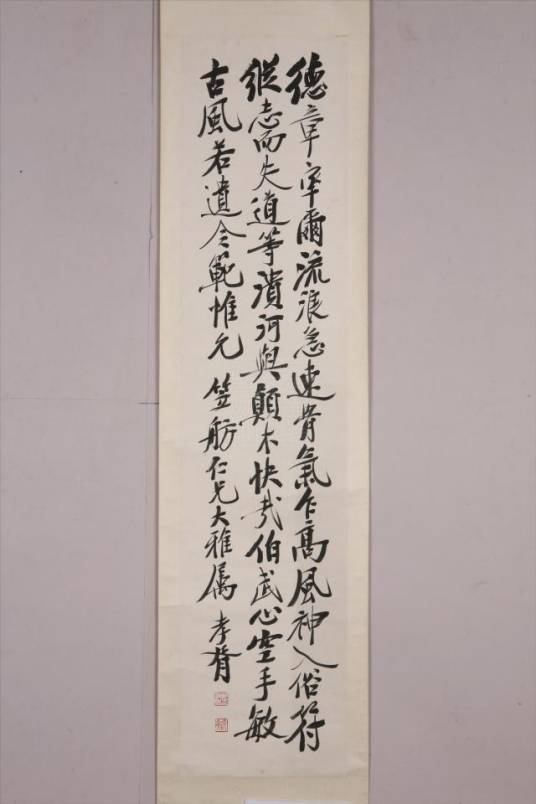 德章宰爾流浪急速骨氣乍高風神入俗符
縱志而失道等潰河與顛木快哉伯武心空手敏
古風若遺令範惟允 笠舫仁兄大雅屬 孝胥